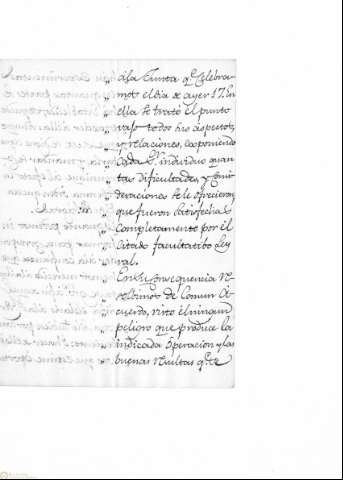 á la Junta q.e Celebra-
mos el dia de ayer 17. En
ella se trató el punto
vajo todos sus aspectos,
y relaciones, exponiendo
cada individuo quan-
tas dificultades, y consi-
deraciones se le ofrecieron,
que fueron satisfechas
completamente por el
citado facultativo Ley
ral.
En su consequencia re-
solbimos de Comun A-
cuerdo, visto el ningun
peligro que produce la
indicada operacion y las
buenas resultas q.e